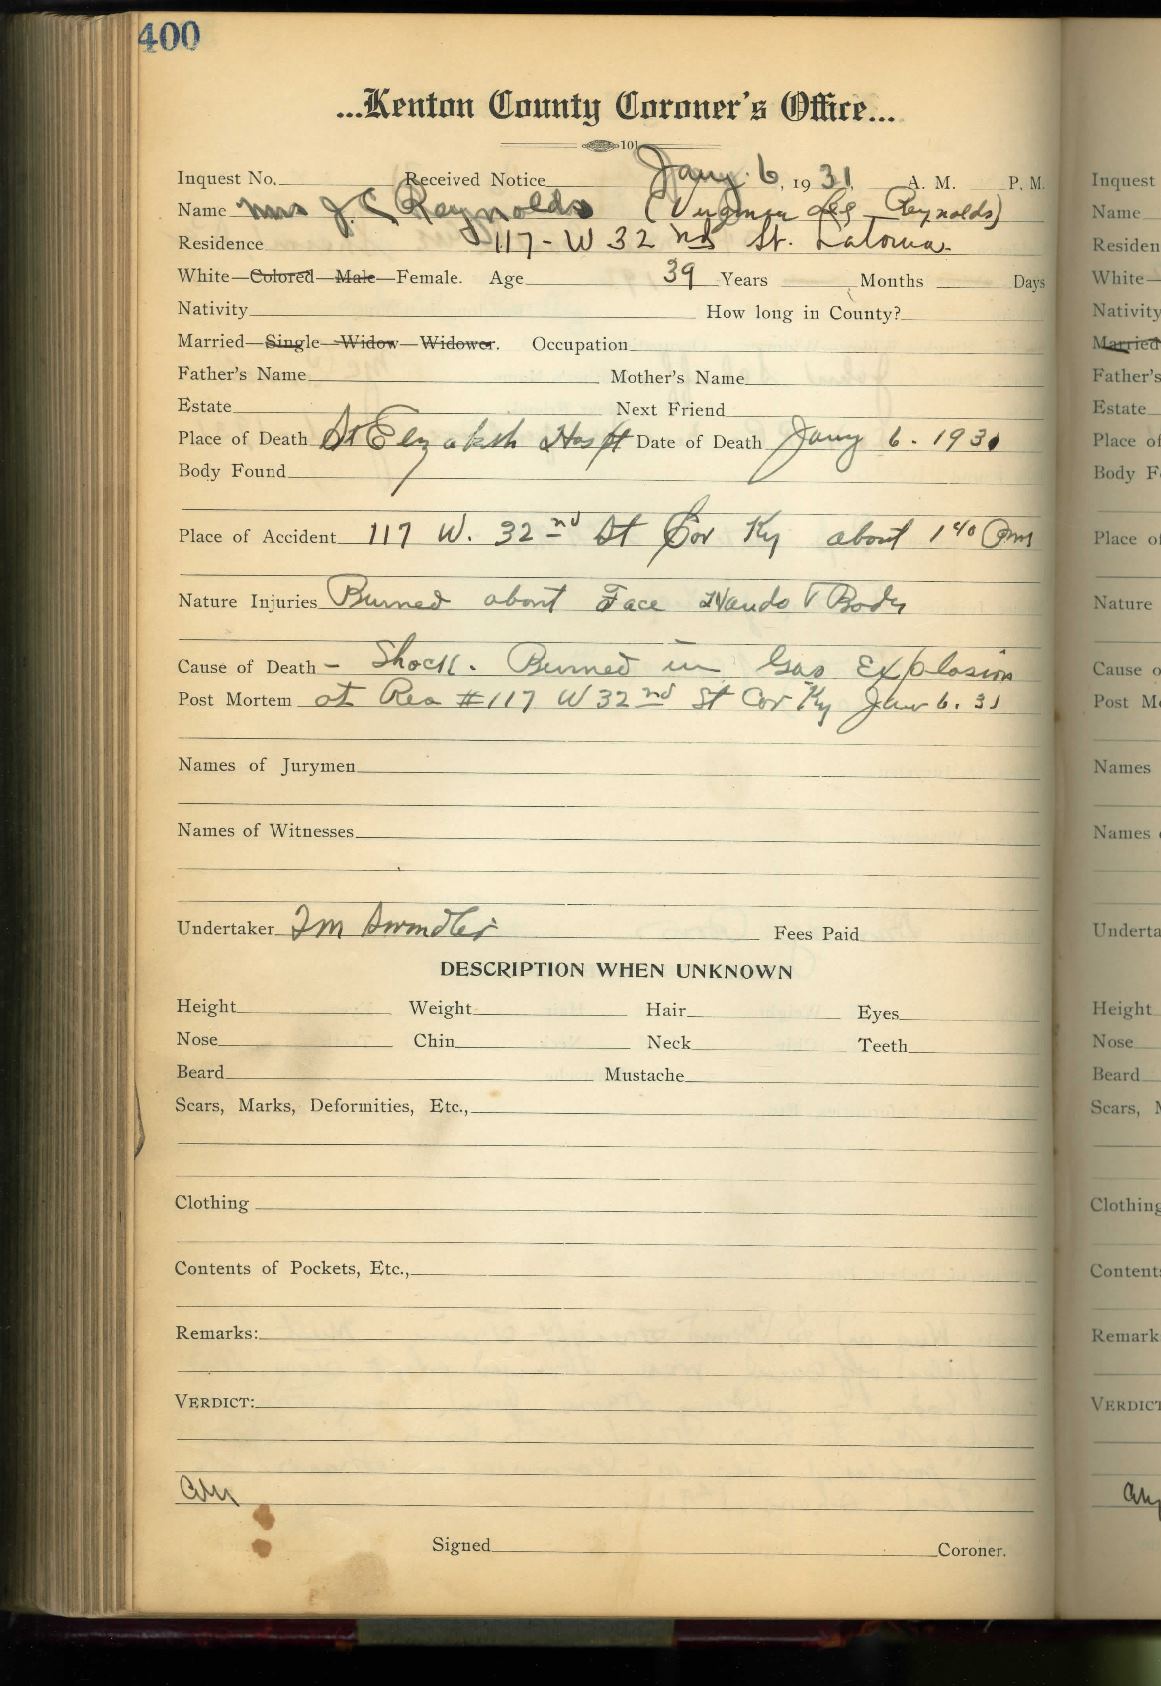 400
...Kenton County Coroner's Office...
101
Inquest No. Received Notice Jany. 6, 1931, A. M. P. M.
Name Mrs J. C Reynolds (Virginia Lee Reynolds)
Residence 117 - W 32 nd St. Latonia.
White—Colored—Male—Female. Age 39 Years Months Days
Nativity How long in County?
Married—Single—Widow—Widower. Occupation
Father's Name Mother's Name
Estate Next Friend
Place of Death St Elzabeth Hospt Date of Death Jany 6. 1931
Body Found
Place of Accident 117 W. 32 nd St Cov Ky about 1 40 Pm
Nature Injuries Burned about Face Hands & Body
Cause of Death – Shock. Burned in Gas Explosion
Post Mortem at Res #117 W 32 nd St Cov Ky Jan 6. 31
Names of Jurymen
Names of Witnesses
Undertaker Swindler Fees Paid
DESCRIPTION WHEN UNKNOWN
Height Weight Hair Eyes
Nose Chin Neck Teeth
Beard Mustache
Scars, Marks, Deformities, Etc.,
Clothing
Contents of Pockets, Etc.,
Remarks:
VERDICT:
Signed Coroner.
Inquest
Name
Residen
White—
Nativity
Married
Father's
Estate
Place of
Body F
Place of
Nature
Cause o
Post M
Names
Names o
Underta
Height
Nose
Beard
Scars, M
Clothing
Contents
Remark
VERDICT